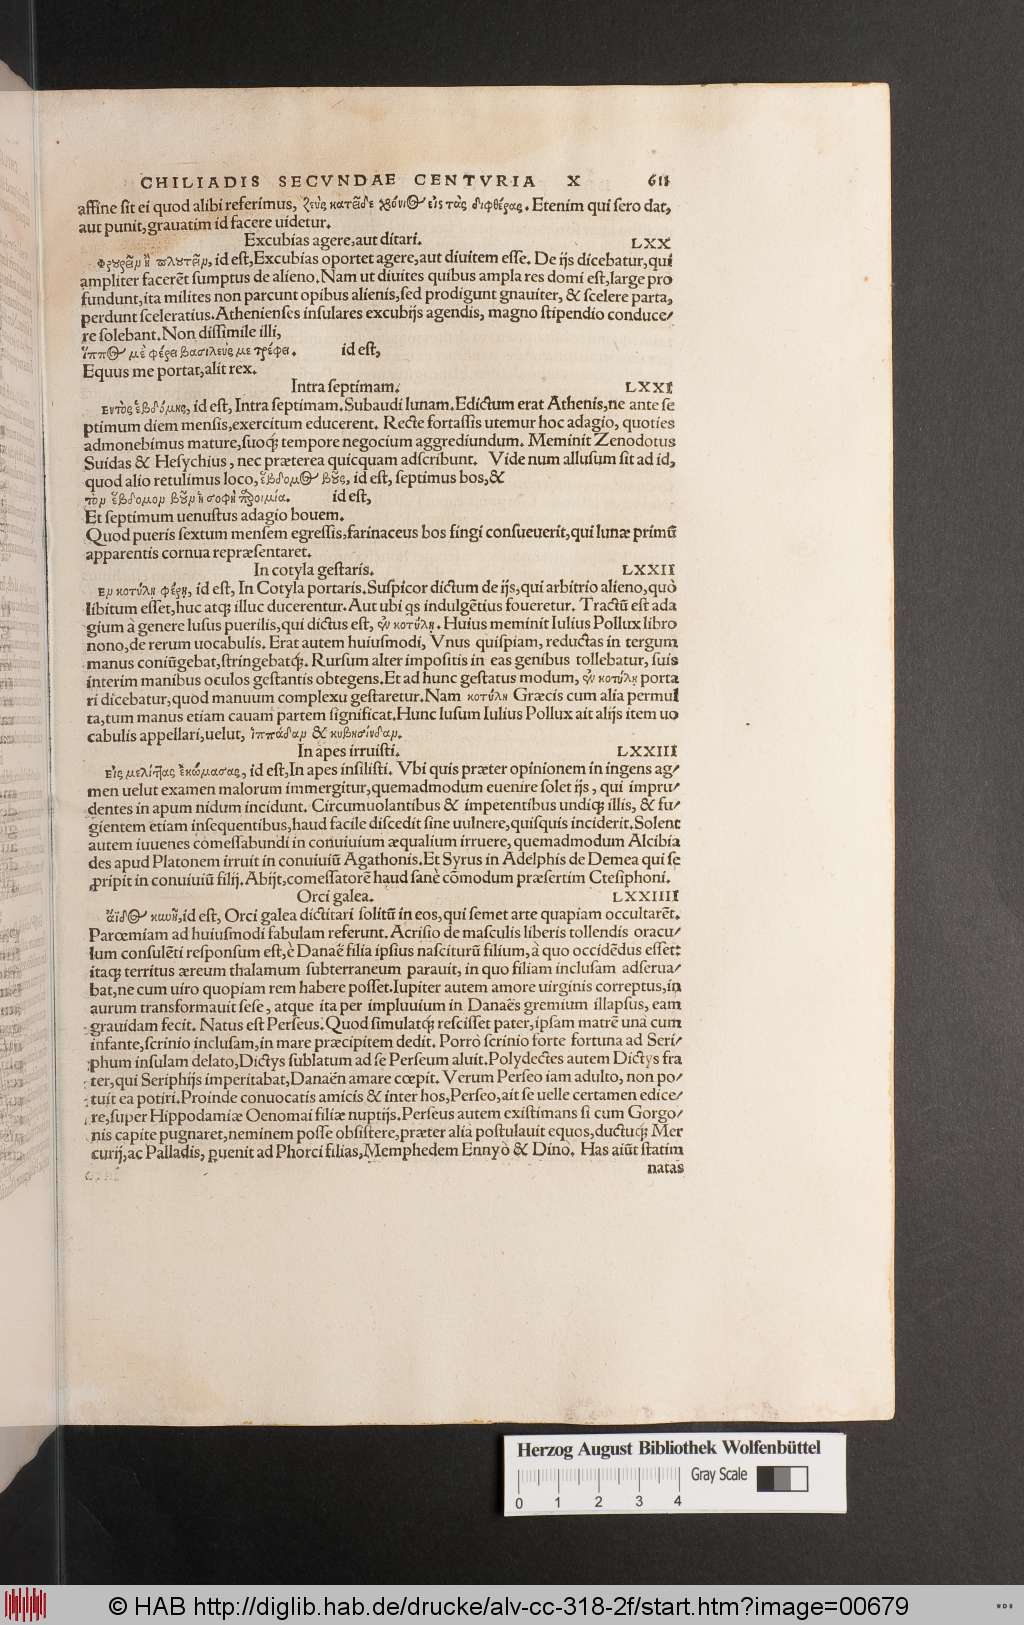 CHILIADIS SECVNDAE CENTVRIA X 611
affine sit ei quod alibi referimus, ζεὺς κατεῖδε χρόνιος εἰς τὰς διφθέρας. Etenim qui sero dat,
aut punit, grauatim id facere uidetur.
Excubias agere, aut ditari. LXX
Φρουρεῖν ἢ πλουτεῖν, id est, Excubias oportet agere, aut diuitem esse. De ijs dicebatur, qui
ampliter facerẽt sumptus de alieno. Nam ut diuites quibus ampla res domi est, large pro
fundunt, ita milites non parcunt opibus alienis, sed prodigunt gnauiter, & scelere parta,
perdunt sceleratius. Athenienses insulares excubijs agendis, magno stipendio conduce/
re solebant. Non dissimile illi,
ἵππος μὲ φέρει βασιλεύς με τρέφει. id est,
Equus me portat, alit rex.
Intra septimam. LXXI
Εντὸς ἑβδόμης, id est, Intra septimam. Subaudi lunam. Edictum erat Athenis, ne ante se
ptimum diem mensis, exercitum educerent. Recte fortassis utemur hoc adagio, quoties
admonebimus mature, suoq; tempore negocium aggrediundum. Meminit Zenodotus
Suidas & Hesychius, nec præterea quicquam adscribunt. Vide num allusum sit ad id,
quod alio retulimus loco, ἕβδομος βοῦς, id est, septimus bos, &
τὸν ἕβδομον βοῦν ἡ σοφὴ παροιμία. id est,
Et septimum uenustus adagio bouem.
Quod pueris sextum mensem egressis, farinaceus bos fingi consueuerit, qui lunæ primũ
apparentis cornua repræsentaret.
In cotyla gestaris. LXXII
Εν κοτύλῃ φέρῃ, id est, In Cotyla portaris. Suspicor dictum de ijs, qui arbitrio alieno, quò
libitum esset, huc atq; illuc ducerentur. Aut ubi qs indulgẽtius foueretur. Tractũ est ada
gium à genere lusus puerilis, qui dictus est, ἐν κοτύλῃ. Huius meminit Iulius Pollux libro
nono, de rerum uocabulis. Erat autem huiusmodi, Vnus quispiam, reductas in tergum
manus coniũgebat, stringebatq;. Rursum alter impositis in eas genibus tollebatur, suis
interim manibus oculos gestantis obtegens. Et ad hunc gestatus modum, ἐν κοτύλῃ porta
ri dicebatur, quod manuum complexu gestaretur. Nam κοτύλη Græcis cum alia permul
ta, tum manus etiam cauam partem significat. Hunc lusum Iulius Pollux ait alijs item uo
cabulis appellari, uelut, ἱππάδαν & κυβησίνδαν.
In apes irruisti. LXXIII
Εἰς μελίττας ἐκώμασας, id est, In apes insilisti. Vbi quis præter opinionem in ingens ag/
men uelut examen malorum immergitur, quemadmodum euenire solet ijs, qui impru/
dentes in apum nidum incidunt. Circumuolantibus & impetentibus undiq; illis, & fu/
gientem etiam insequentibus, haud facile discedit sine uulnere, quisquis inciderit. Solent
autem iuuenes comessabundi in conuiuium æqualium irruere, quemadmodum Alcibia
des apud Platonem irruit in conuiuiũ Agathonis. Et Syrus in Adelphis de Demea qui se
pripit in conuiuiũ filij. Abijt, comessatorẽ haud sanè cõmodum præsertim Ctesiphoni.
Orci galea. LXXIIII
ἄϊδος κυνῆ, id est, Orci galea dictitari solitũ in eos, qui semet arte quapiam occultarẽt.
Parœmiam ad huiusmodi fabulam referunt. Acrisio de masculis liberis tollendis oracu/
lum consulẽti responsum est, è Danaë filia ipsius nasciturũ filium, à quo occidẽdus esset:
itaq; territus æreum thalamum subterraneum parauit, in quo filiam inclusam adserua/
bat, ne cum uiro quopiam rem habere posset. Iupiter autem amore uirginis correptus, in
aurum transformauit sese, atque ita per impluuium in Danaës gremium illapsus, eam
grauidam fecit. Natus est Perseus. Quod simulatq; rescisset pater, ipsam matrẽ una cum
infante, scrinio inclusam, in mare præcipitem dedit. Porrò scrinio forte fortuna ad Seri/
phum insulam delato, Dictys sublatum ad se Perseum aluit. Polydectes autem Dictys fra
ter, qui Seriphijs imperitabat, Danaën amare cœpit. Verum Perseo iam adulto, non po/
tuit ea potiri. Proinde conuocatis amicis & inter hos, Perseo, ait se uelle certamen edice/
re, super Hippodamiæ Oenomai filiæ nuptijs. Perseus autem existimans si cum Gorgo/
nis capite pugnaret, neminem posse obsistere, præter alia postulauit equos, ductuq; Mer
curij, ac Palladis, puenit ad Phorci filias, Memphedem Ennyò & Dinò. Has aiũt statim
natas
Herzog August Bibliothek Wolfenbüttel
Gray Scale
0 1 2 3 4
© HAB http://diglib.hab.de/drucke/alv-cc-318-2f/start.htm?image=00679